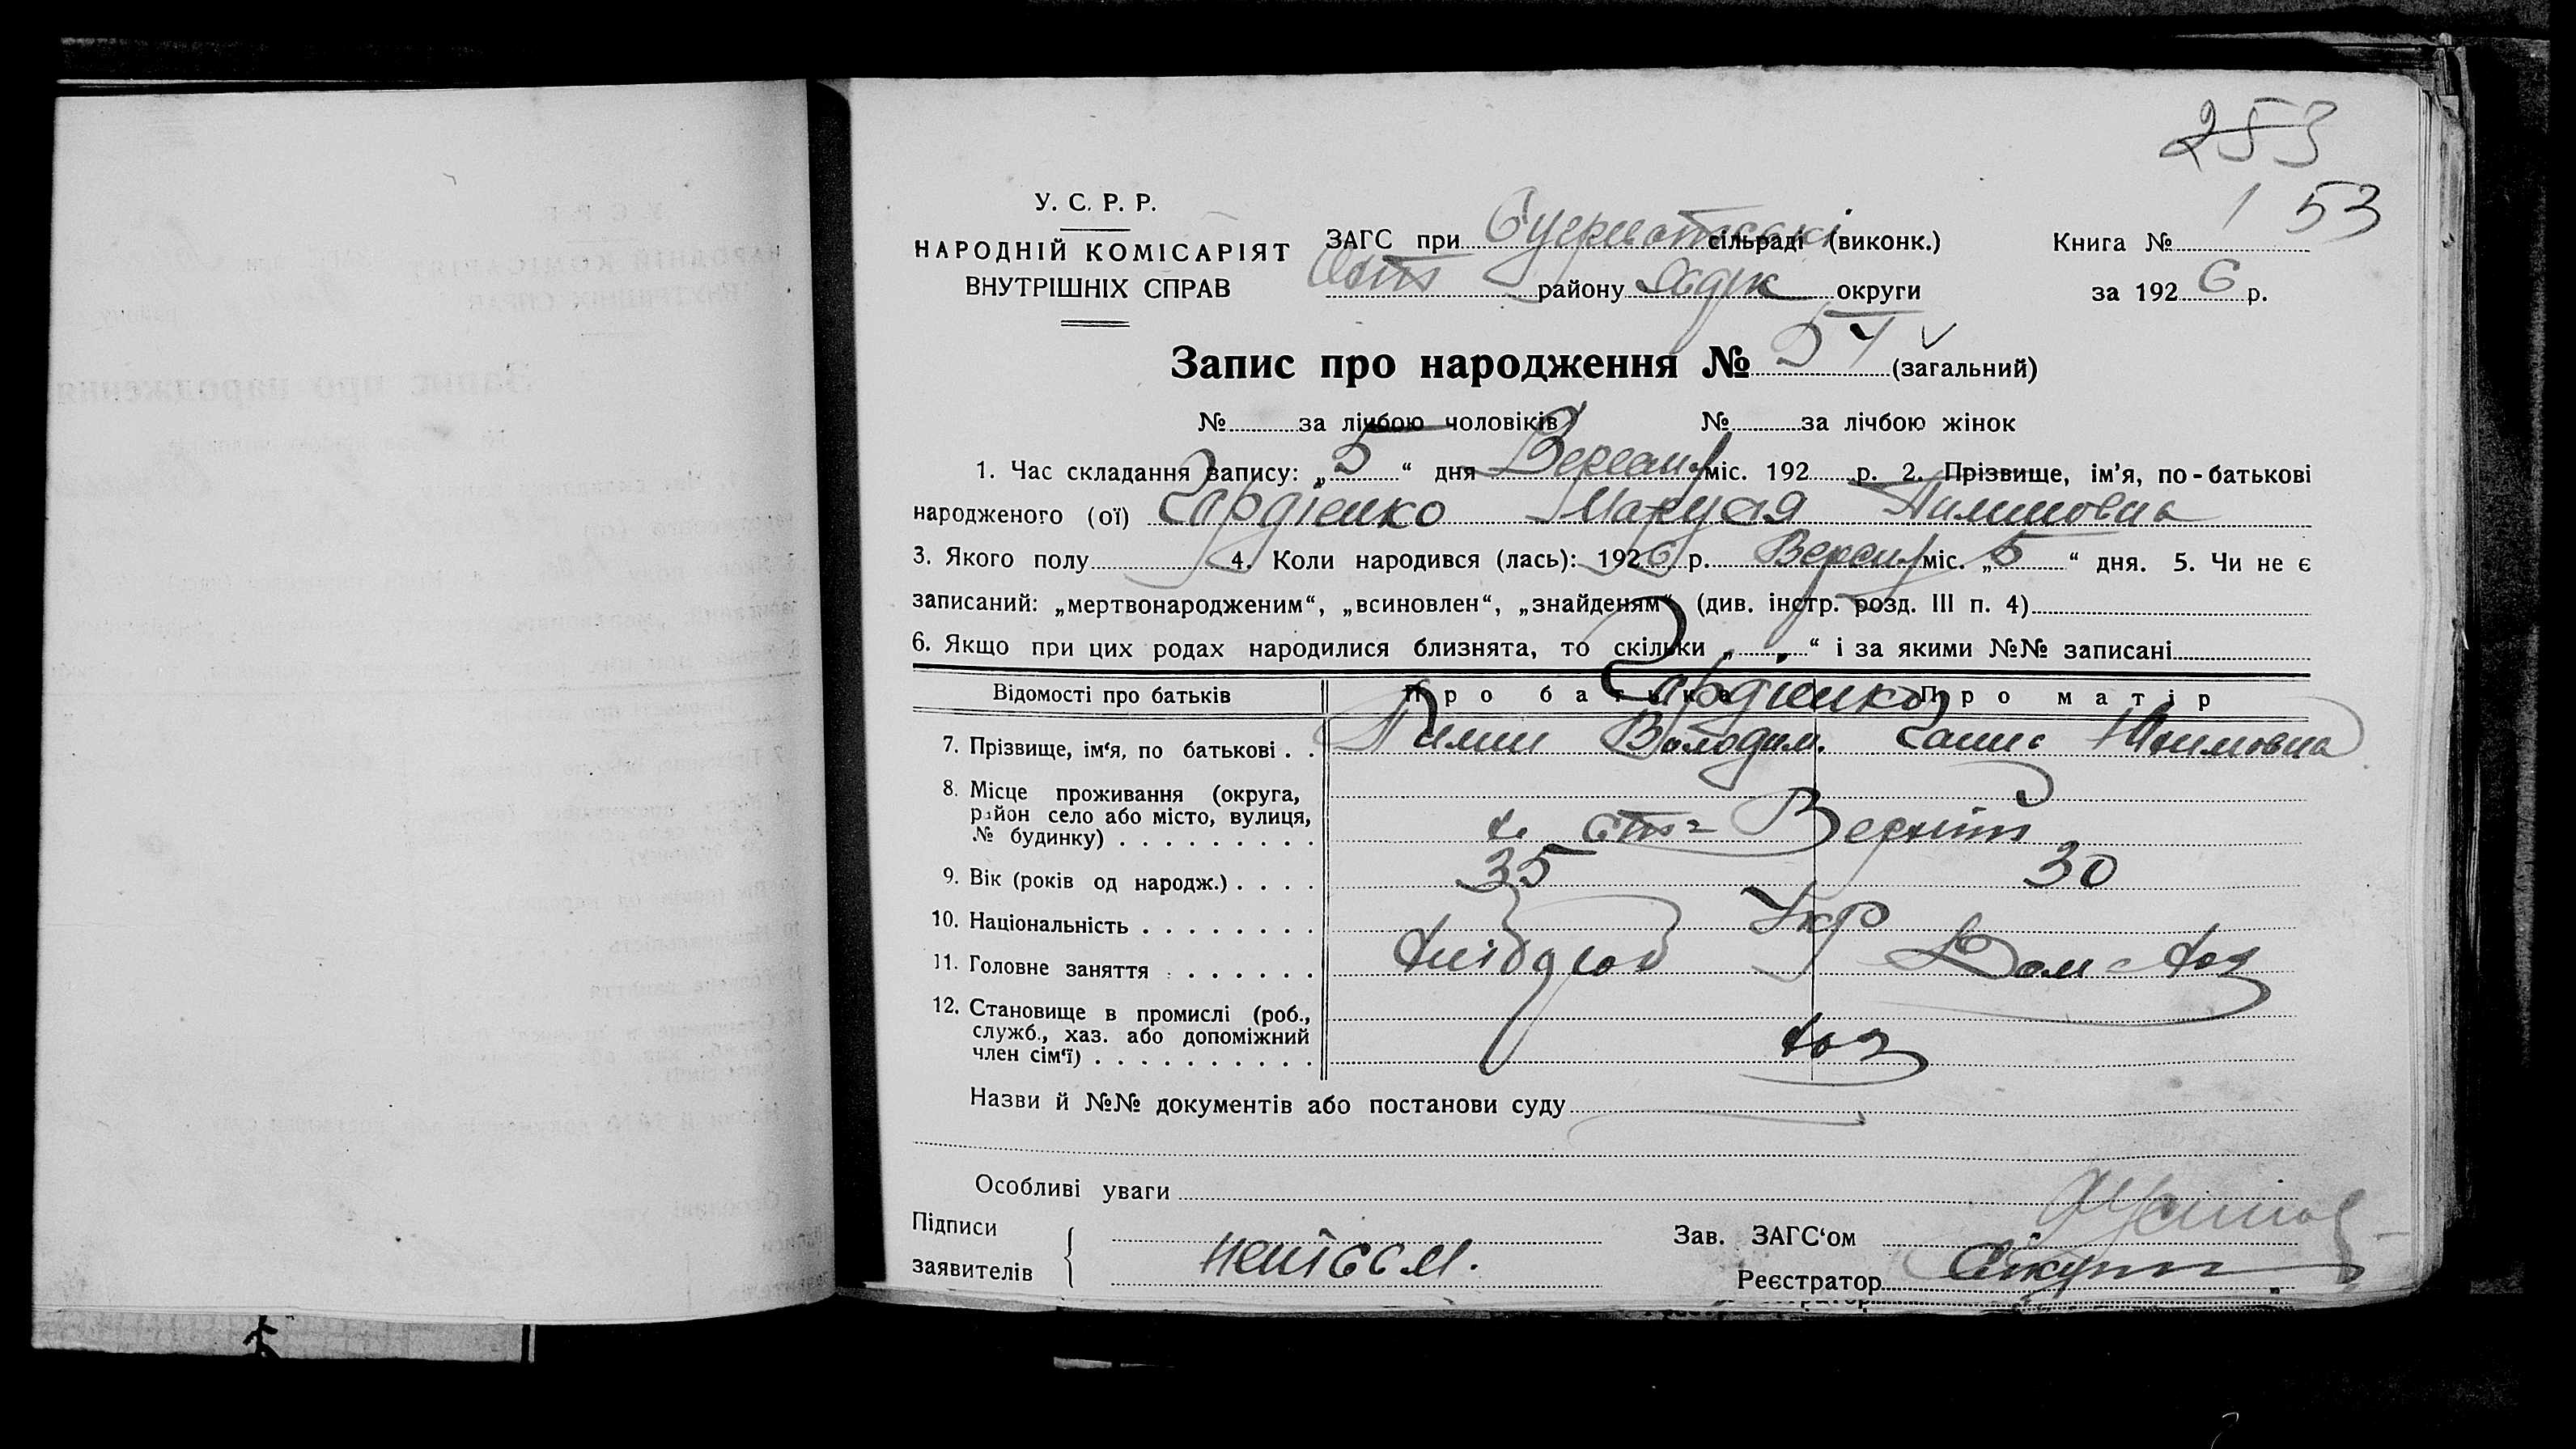 253
53
У. С. Р. Р.
НАРОДНІЙ КОМІСАРІЯТ
ВНУТРІШНІХ СПРАВ
ЗАГС при сільраді (виконк.)
району округи
Книга № 1
за 192 6 р.
Запис про народження № (загальний)
№ за лічбою чоловіків № за лічбою жінок
1. Час складання запису: „ 5 “ дня Вересня міс. 192 р. 2. Прізвище, ім'я, по-батькові
народженого (ої) Гордієнко Маруся Пилиповна
3. Якого полу 4. Коли народився (лась): 192 6 р. Вересня міс. „ 5 “ дня. 5. Чи не є
записаний: „мертвонародженим“, „всиновлен“, „знайденям“ (див. інстр. розд. III п. 4)
6. Якщо при цих родах народилися близнята, то скільки „ “ і за якими №№ записані
Відомості про батьків Про батька Про матір
Гордієнко
7. Прізвище, ім'я, по батькові . . Пилип Володим.
8. Місце проживання (округа,
район село або місто, вулиця,
№ будинку) . . . . . . . . .
9. Вік (років од народж.) . . . . 35 30
10. Національність . . . . . . . . Укр
11. Головне заняття . . . . . . . Хлібороб Дом хоз
12. Становище в промислі (роб.,
служб., хаз. або допоміжний
член сім'ї) . . . . . . . . . . хоз
Назви й №№ документів або постанови суду
Особливі уваги
Підписи
заявителів неписм.
Зав. ЗАГС'ом
Реєстратор